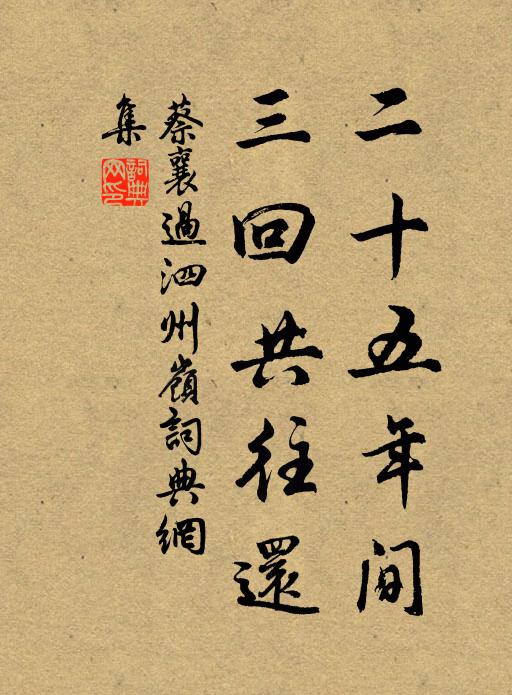 二十五年間
三回共往還
蔡襄過泗州嶺詞典網
集
詞典
网印